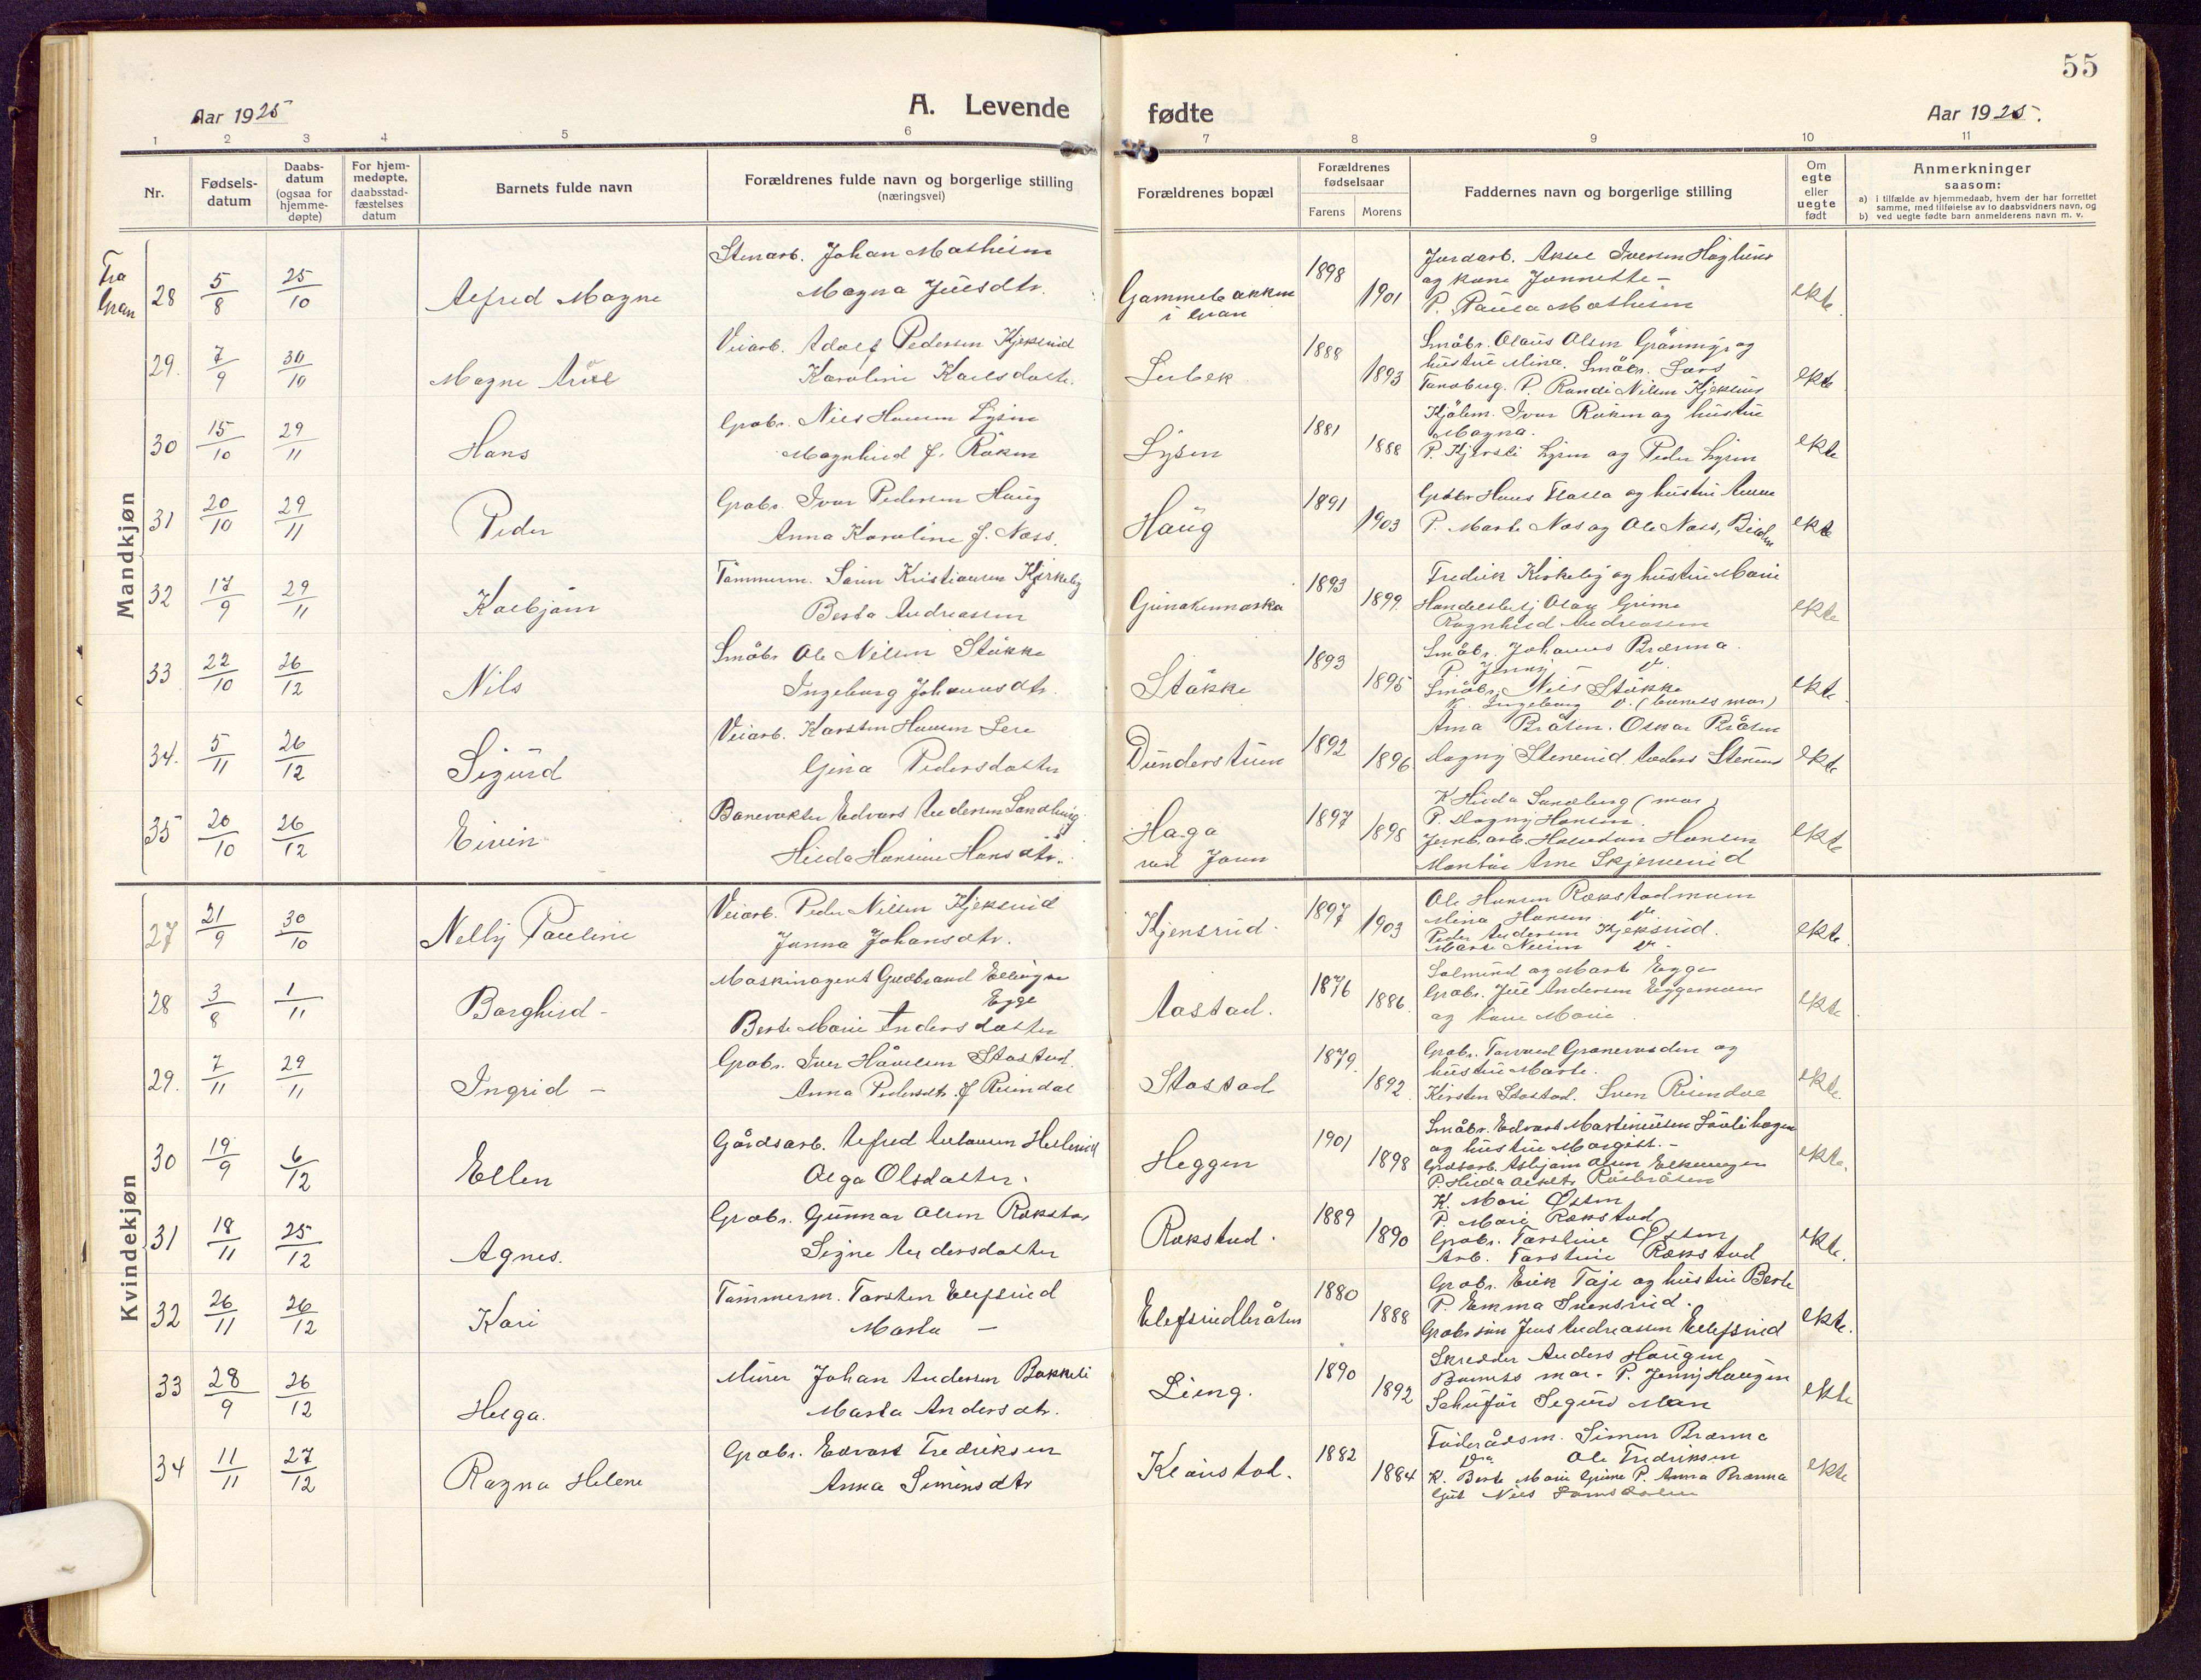 55
Aar 1925
A. Levende fødte
Aar 1925.
1 2 3 4 5 6 7 8 9 10 11
Nr.
Fødselsdatum
Daabsdatum (ogsaa for hjemmedøpte)
For hjemmedøpte, daabsstadfæstelses datum
Barnets fulde navn
Forældrenes fulde navn og borgerlige stilling (næringsvei)
Forældrenes bopæl
Forældrenes fødselsaar
Farens Morens
Faddernes navn og borgerlige stilling
Om egte eller uegte født
Anmerkninger saasom:
a) i tilfælde av hjemmedaab, hvem der har forrettet samme, med tilføielse av to daabsvidners navn, og
b) ved uegte fødte barn anmelderens navn m. v.
Mandkjøn
Fra Gran
28 5/8 25/10 Alfred Magne
Stenarb. Johan Mathisen
Magna Juelsdtr.
Gammelbakken i Gran 1898 1901
og kone Jannette -
P. Paula Mathisen
ekte
29. 7/9 30/10 Magne
Veiarb. Adolf Pedersen Kjeksrud
Karoline Karlsdatter
1888 1893
Småbr. Olaus Olsen Grånmyr og
hustru Mina. Småbr. Lars
P. Randi Nilsen Kjeksrud
ekte
30 15/10 29/11 Hans
Grdbr. Nils Hansen Lysen
Magnhild f. Roken
Lysen 1881 1888
Ivar Roken og hustru
Magna.
P. Kjersti Lysen og Peder Lysen
ekte
31 20/10 29/11 Peder
Grdbr. Ivar Pedersen Haug
Anna Karoline f. Næss.
Haug 1891 1903
Grdbr Hans og hustru
P. Marte Næs og Ole Næss,
ekte
32 17/9 29/11 Kolbjørn
Tømmerm. Søren Kristiansen Kirkeby
Berta Andreassen
1893 1899
Fredrik Kirkeby og hustru Marie
Olav Grime
Ragnhild Andreassen
ekte
33 22/10 26/12 Nils
Småbr Ole Nilsen Stakke
Ingeborg Johannsdtr.
Stakke 1893 1895
Småbr. Johannes Brænna.
P. Jenny -
Småbr. Nils Stakke
K. Ingeborg do. (barnets mor)
ekte
34. 5/11 26/12 Sigurd
Veiarb. Karsten Hansen
Gina Pedersdatter
Dunderstuen 1892 1896
Anna Bråten. Oskar Bråten
Dagny Stenerud
ekte
35 20/10 26/12 Eivin
Banevokter Edvart Andersen Sandberg
Hilda Hansine Hansdtr.
Haga ved Jaren 1897 1898
K Hilda Sandberg (mor)
P. Dagny Hansen.
Jernb.arb. Halvdan Hansen
Montør Arne Skjerverud
ekte
Kvindekjøn
27 21/9 30/10 Nelly Pauline
Veiarb. Peder Nilsen Kjeksrud
Janna Johansdtr.
Kjensrud. 1897 1903
Ole Hansen Rokstadmoen
Mina Hansen do
Peder Andersen Kjeksrud.
Marte Nilsen do.
ekte
28 3/8 1/11 Borghild -
Maskinagent Gudbrand Ellingsen Egge
Berte Marie Andersdatter
Aastad. 1876 1886
Salmund og Marte Egge
Grdbr. Juul Andersen Eggemoen
og kone Marie.
ekte
29. 7/11 29/11 Ingrid -
Grdbr. Iver Håvelsen Stastad
Anna Pedersdtr. f Risendal
Stastad 1879. 1892
Grdbr. Torvald Granerudsden og
hustru Marte.
Kirsten Stastad. Sven Risendal
ekte.
30 19/9 6/12 Ellen
Gårdsarb. Alfred
Olga Olsdatter.
Heggen 1901 1898
Småbr. Edvart Martiniusen
og hustru Margit. -
P. Hilda
ekte.
31 18/11 25/12 Agnes.
Grdbr. Gunnar Olsen Rokstad
Signe Andersdatter
Rokstad. 1889 1890
K. Mari Østen
P. Marie Rokstad
Grdbr. Torstein Østen
Arb. Torstein Rokstad
ekte.
32 26/11 26/12 Kari
Tømmerm. Torsten Elefsrud
Marta -
Elefsrudbråten 1880 1888
Grdbr. Erik Taje og hustru Berte
P. Emma Svensrud.
Grdbrsøn Jens Andreassen Ellefsrud
ekte.
33 28/9 26/12 Helga.
Murer Johan Andersen Bakkeli
Marta Andersdtr.
Lieng. 1890 1892
Skredder Anders Haugen
Barnets mor. P. Jenny Haugen
Schufør Sigurd Moen
ekte
34 11/11 27/12 Ragna Helene
Grdbr. Edvart Fredriksen
Anna Simensdtr
Klaustad. 1882 1884
Føderådsm. Simen Brænna
Ole Fredriksen
K. Berte Marie Grime P. Anna Brænna
Gut Nils
ekte